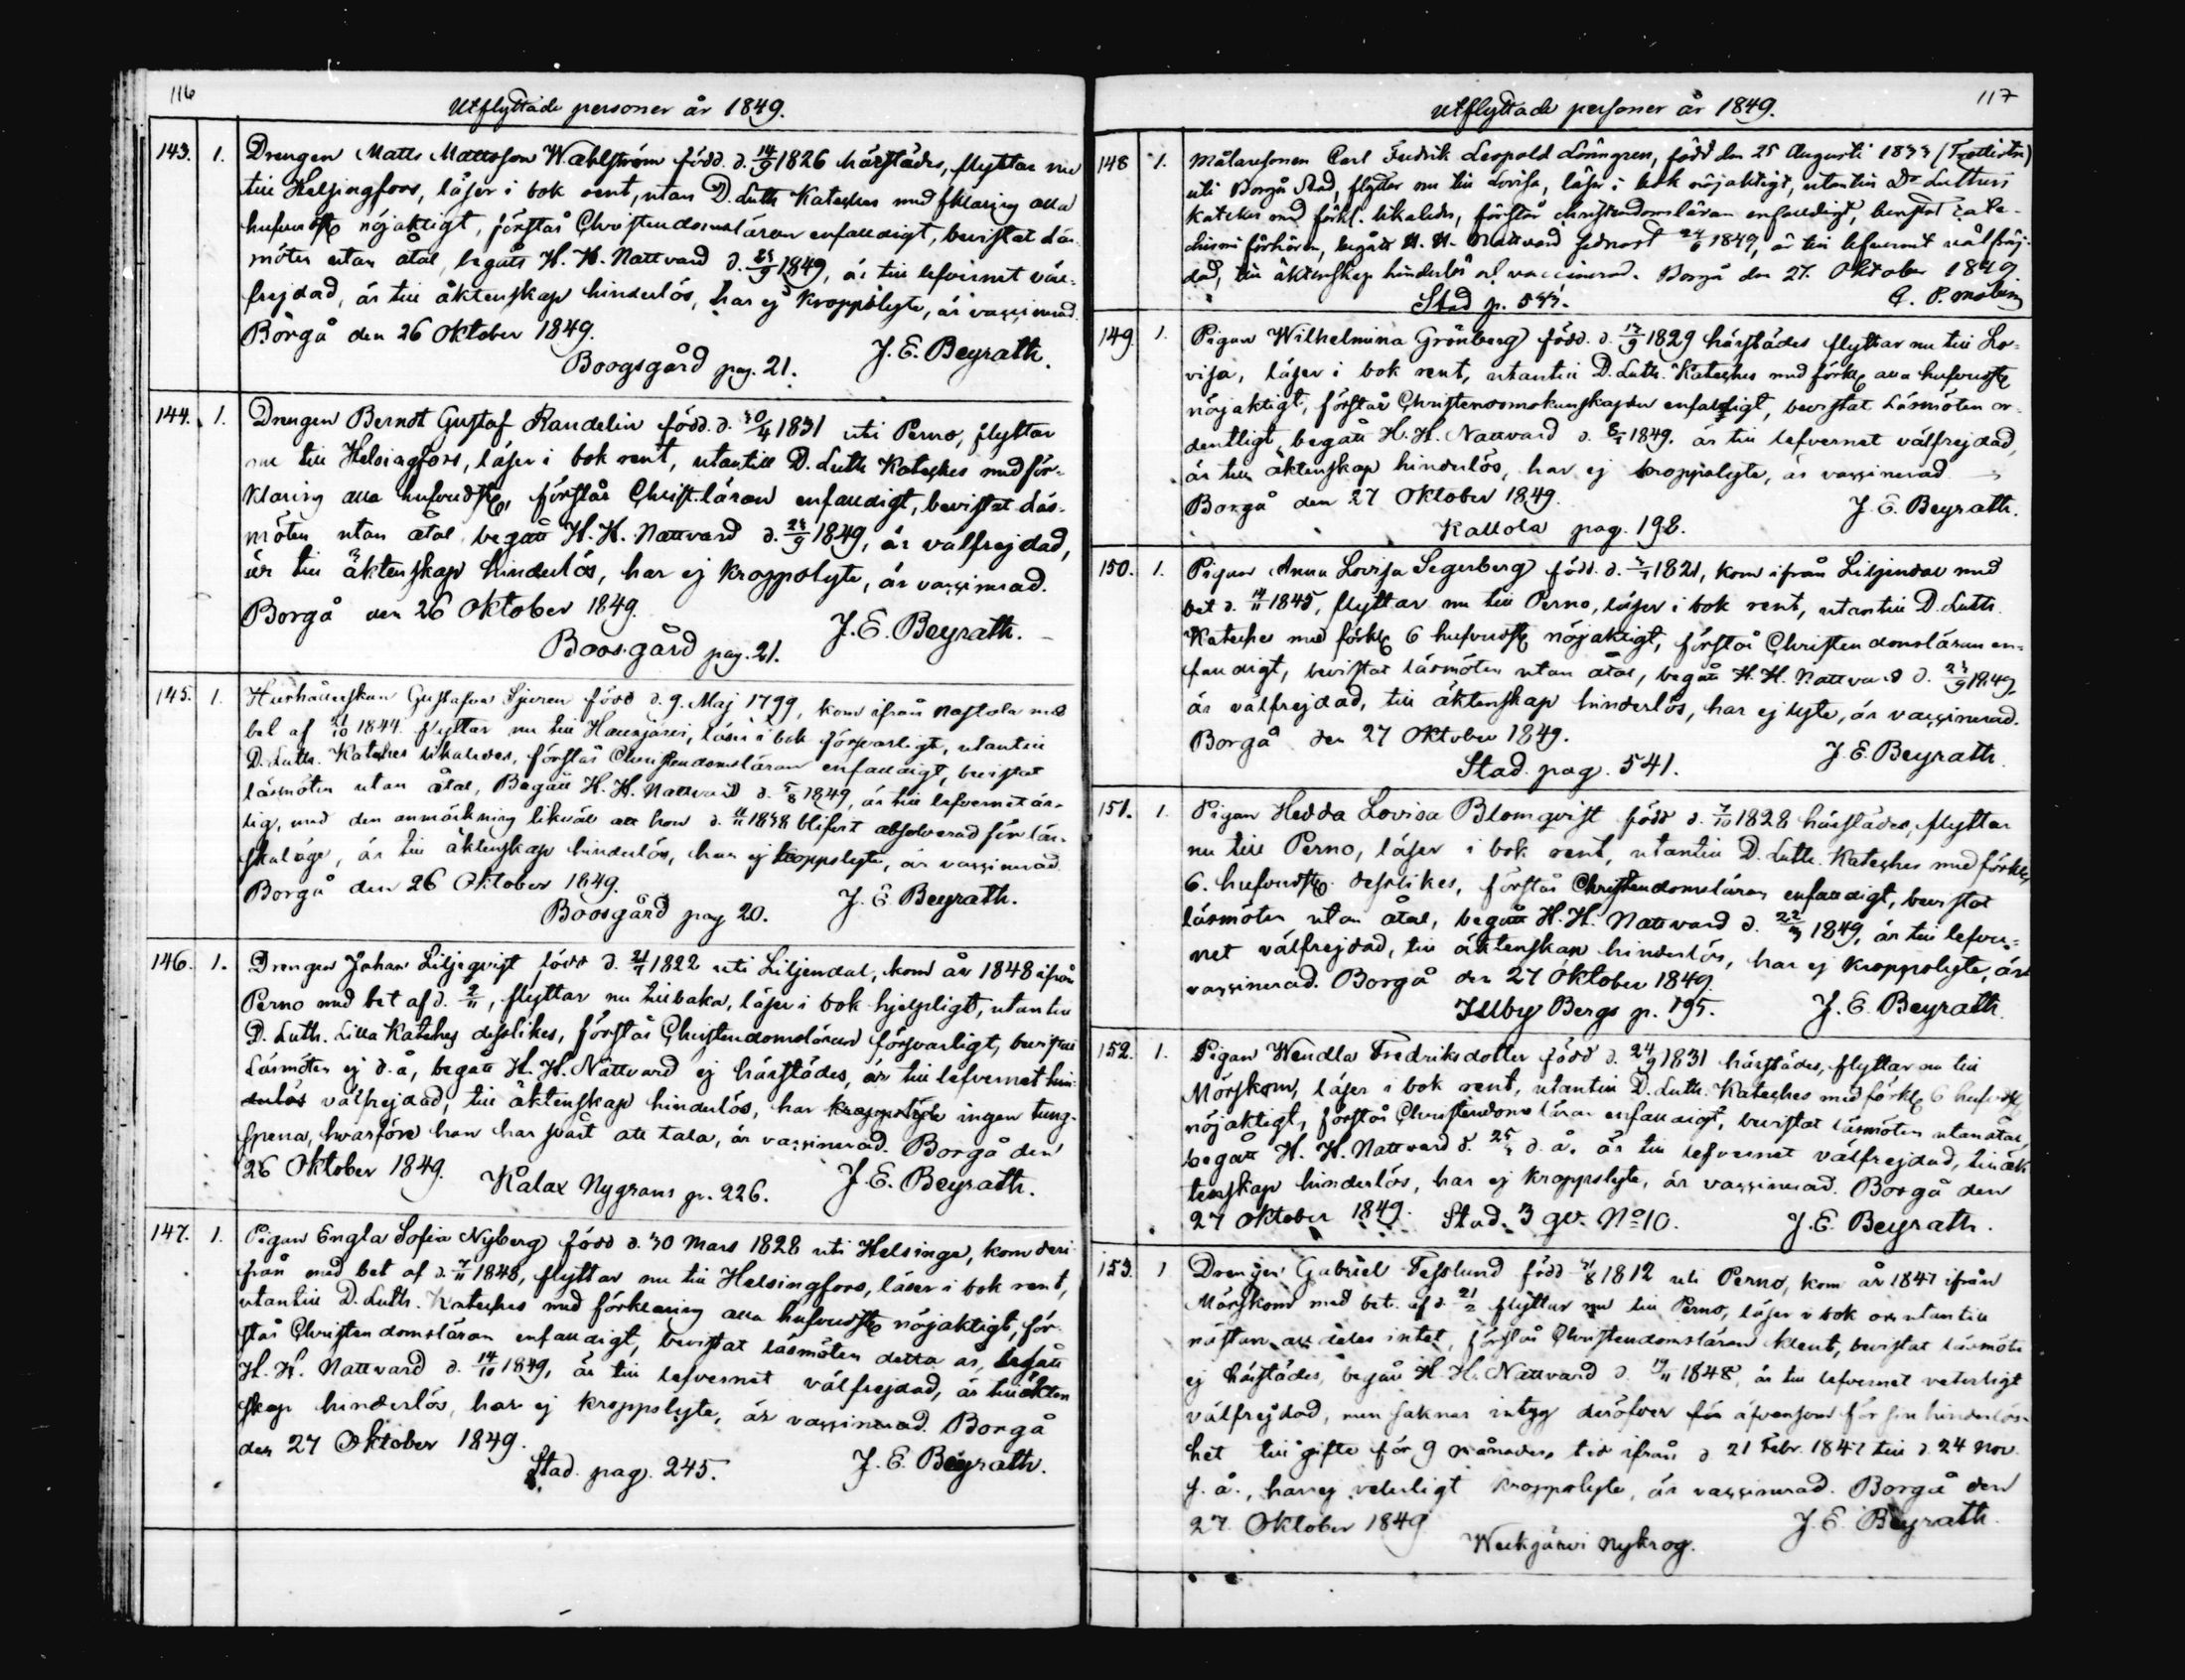 116
Utflyttade personer år 1849.
143. 1. Drengen Matts Mattsson Wahlström född. d. 14/9 1826 härstädes, flyttar nu
till Helsingfors, läser i bok rent, utan D. Luth Kateches med fklaring alla
hufvudst nöjaktigt, förstår Christendomsläran enfaldigt, bevistat Läs-
möten utan åtal, begått H. H. Nattvard d. 23/9 1849, är till lefvernet väl-
frejdad, är till äktenskap hinderlös, har ej kroppslyte, är vaccinerad.
Borgå den 26 Oktober 1849.
J. E. Beyrath.
Boogsgård pag. 21.
144. 1. Drengen Berndt Gustaf Randelin född. d. 30/4 1831 uti Perno, flyttar
nu till Helsingfors, läser i bok rent, utantill D. Luth Kateches med för-
klaring alla hufvudst, förstår Christ.läran enfaldigt, bevistat Läs-
möten utan åtal, begått H. H. Nattvard d. 23/9 1849, är välfrejdad,
är till äktenskap hinderlös, har ej kroppslyte, är vaccinerad.
Borgå den 26 Oktober 1849.
J. E. Beyrath.
Boosgård pag. 21.
145. 1. Hushållerskan Gustafva Sjuren född d. 9. Maj 1799, kom ifrån Nastola med
bet af 21/10 1844 flyttar nu till Hausjärvi, läser i bok försvarligt, utantill
D. Luth. Kateches likaledes, förstår Christendomsläran enfaldigt, bevistat
läsmöten utan åtal, Begått H. H. Nattvard d. 5/8 1849, är till lefvernet är-
lig, med den anmärkning likväl att hon d. 11/11 1838 blifvit absolverad för lön-
skaläge, är till äktenskap hinderlös, har ej kroppslyte, är vaccinerad
Borgå den 26 Oktober 1849.
J. E. Beyrath.
Boosgård pag 20.
146. 1. Drengen Johan Liljeqvist född d. 21/7 1822 uti Liljendal, kom år 1848 ifrån
Perno med bet af d. 2/11, flyttar nu tillbaka, läser i bok hjelpligt, utantill
D. Luth. Lilla Kateches desslikes, förstår Christendomsläran försvarligt, bevistat
Läsmöten ej d. å, begått H. H. Nattvard ej härstädes, är till lefvernet hin-
derlös välfrejdad, till äktenskap hinderlös, har kroppslyte ingen tung-
spena, hvarföre han har svårt att tala, är vaccinerad. Borgå den
26 Oktober 1849.
J. E. Beyrath.
Kalax Nygrans p. 226.
147. 1. Pigan Engla Sofia Nyberg född d. 30 Mars 1828 uti Helsinge, kom deri-
från med bet af d. 7/11 1848, flyttar nu till Helsingfors, läser i bok rent,
utantill D. Luth. Kateches med förklaring alla hufvudst nöjaktigt, för-
står Christendomsläran enfaldigt, bevistat läsmöten detta år, begått
H. H. Nattvard d. 14/10 1849, är till lefvernet välfrejdad, är till äkten
skap hinderlös, har ej kroppslyte, är vaccinerad. Borgå
den 27 Oktober 1849.
J. E. Beyrath.
Stad. pag. 245.
117
Utflyttade personer år 1849.
148 1. Målaresonen Carl Fredrik Leopold Lönngren, född den 25 Augusti 1833
uti Borgå Stad, flyttar nu till Lovisa, läser i bok nöjaktigt, utantill Dr Lutheri
Kateches med förkl. likaledes, förstår christendomsläran enfaldigt, bevistat cate-
chismi förhören, begått H. H. Nattvard sednast 24/6 1849, är till lefvernet välfräj-
dad, till äktenskap hinderlös och vaccinerad. Borgå den 27. Oktober 1849.
Stad p. 533.
149. 1. Pigan Wilhelmina Grönberg född. d. 17/9 1829 härstädes flyttar nu till Lo-
visa, läser i bok rent, utantill D. Luth. Kateches med förkl alla hufvudst
nöjaktigt, förstår Christendomskunskapen enfaldigt, bevistat Läsmöten or-
dentligt, begått H. H. Nattvard d. 1849. är till lefvernet välfrejdad,
är till äktenskap hinderlös, har ej kroppslyte, är vaccinerad
Borgå den 27 Oktober 1849.
J. E. Beyrath.
Kallola pag. 198.
150. 1. Pigan Anna Lovisa Segerberg född. d. 1821, kom ifrån Liljendal med
bet d. 14/11 1845, flyttar nu till Perno, läser i bok rent, utantill D. Luth.
Kateches med förkl 6 hufvudst nöjaktigt, förstår Christendomsläran en-
faldigt, bevistat läsmöten utan åtal, begått H. H. Nattvard d. 23/9 1849,
är välfrejdad, till äktenskap hinderlös, har ej lyte, är vaccinerad.
Borgå den 27 Oktober 1849.
J. E. Beyrath.
Stad. pag. 541.
151. 1. Pigan Hedda Lovisa Blomqvist född d. 7/10 1828 härstädes, flyttar
nu till Perno, läser i bok rent, utantill D. Luth. Kateches med förkl
6. hufvudst desslikes, förstår Christendomsläran enfaldigt, bevistat
läsmöten utan åtal, begått H. H. Nattvard d. 1849, är till lefver-
net välfrejdad, till äktenskap hinderlös, har ej kroppslyte, är
vaccinerad. Borgå den 27 Oktober 1849.
J. E. Beyrath.
Illby Bergs p. 195.
152. 1. Pigan Wendla Fredriksdotter född d. 24/9 1831 härstädes, flyttar nu till
Mörskom, läser i bok rent, utantill D. Luth. Kateches med förkl 6 hufvudst
nöjaktigt, förstår Christendomsläran enfaldigt, bevistat läsmöten utan åtal,
begått H. H. Nattvard d. d. å. är till lefvernet välfrejdad, till äk
tenskap hinderlös, har ej kroppslyte, är vaccinerad. Borgå den
27 Oktober 1849. Stad. 3 qv. No 10.
J. E. Beyrath.
153. 1 Drengen Gabriel Fesslund född 1812 uti Perno, kom år 1847 ifrån
Mörskom med bet. af d. 21/2 flyttar nu till Perno, läser i bok och utantill
nästan alldeles intet, förstår Christendomsläran klent, bevistat läsmöte
ej härstädes, begått H. H. Nattvard d. 19/11 1848, är till lefvernet veterligt
välfrejdad, men saknar intyg deröfver för äfvensom för sin hinderlös-
het till gifte för 9 månaders tid ifrån d 21 Febr. 1847 till d. 24 Nov.
s. å., har ej veterligt kroppslyte, är vaccinerad. Borgå den
27. Oktober 1849
J. E. Beyrath.
Weckjärvi Nykrog.